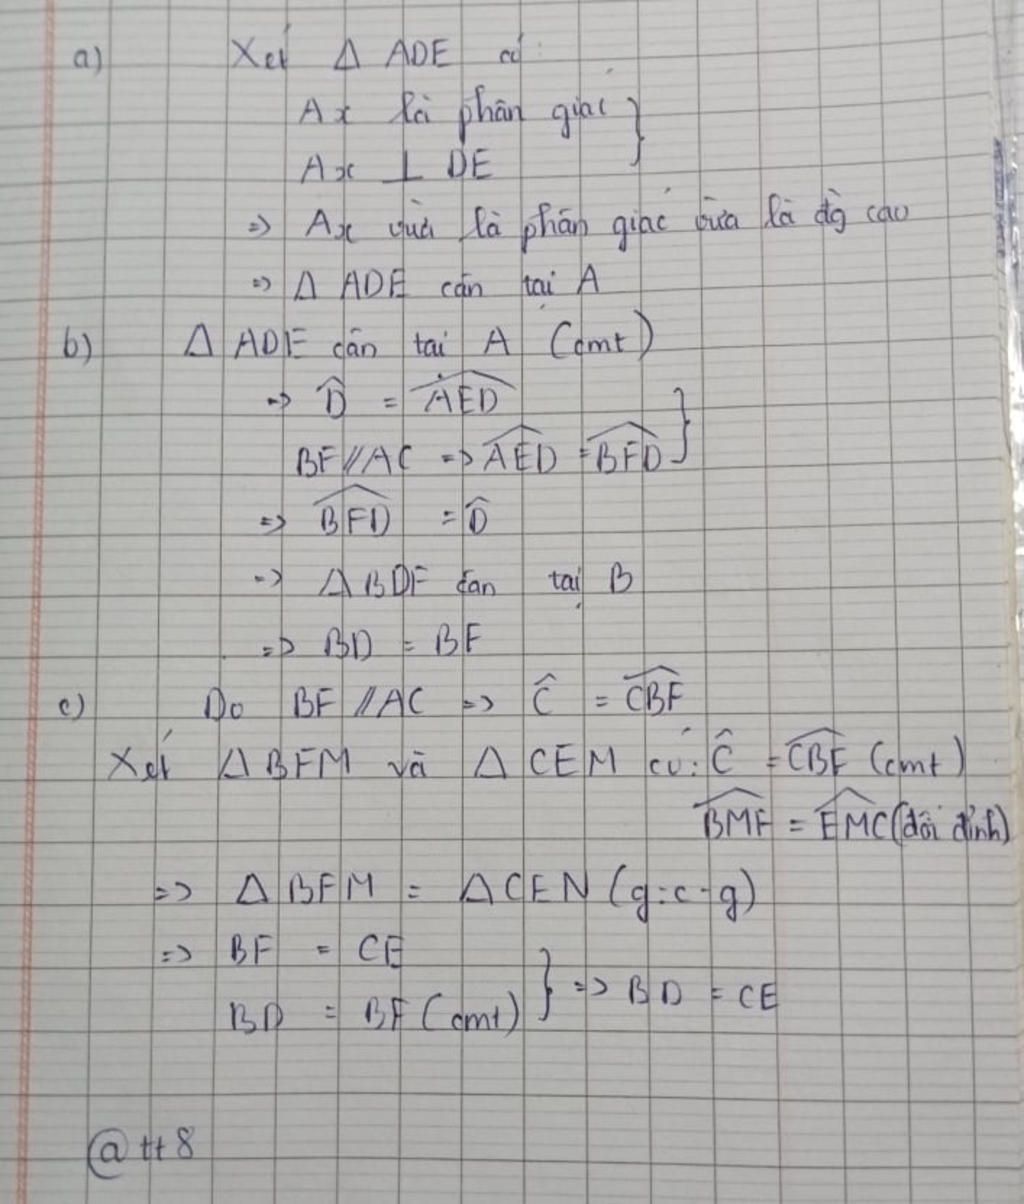 a) Xét Δ ADE có:
Ax là phân giác }
Ax ⊥ DE
=> Ax vừa là phân giác vừa là đg cao
=> Δ ADE cân tại A
b) Δ ADE cân tại A (cmt)
=> D̂ = \widehat{AED}
BF // AC => \widehat{AED} = \widehat{BFD} }
=> \widehat{BFD} = D̂
=> Δ BDF cân tại B
=> BD = BF
c) Do BF // AC => Ĉ = \widehat{CBF}
Xét Δ BFM và Δ CEM có: Ĉ = \widehat{CBF} (cmt)
\widehat{BMF} = \widehat{EMC} (đối đỉnh)
=> Δ BFM = Δ CEN (g.c.g)
=> BF = CE
BD = BF (cmt) } => BD = CE
@ tt 8